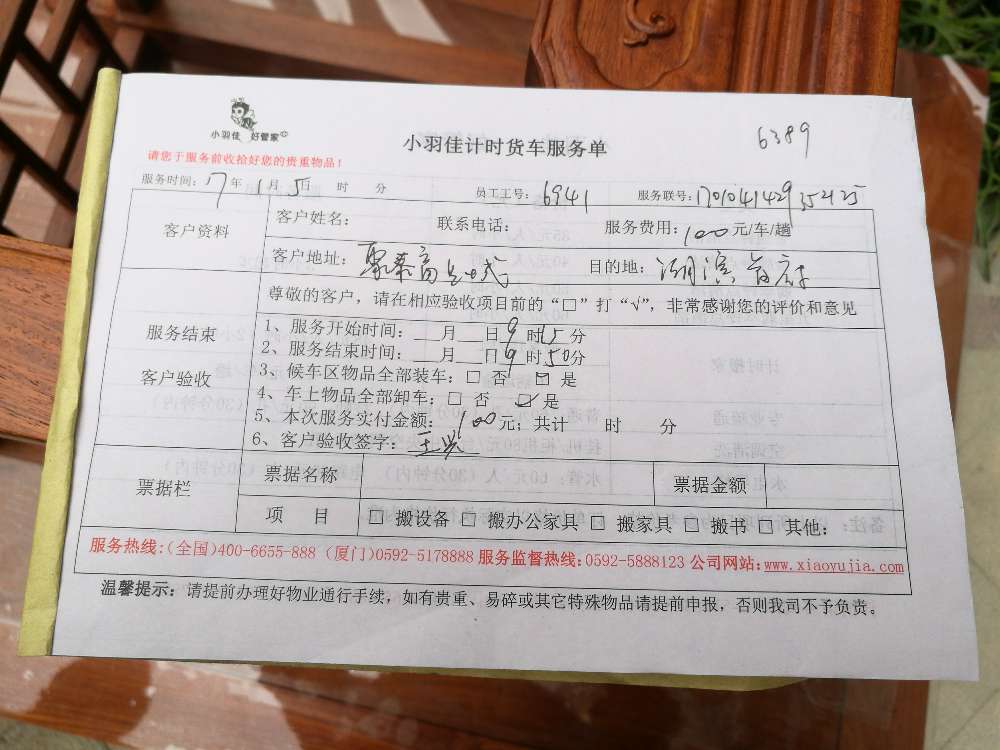 小羽佳 好管家
小羽佳计时货车服务单
6389
请您于服务前收拾好您的贵重物品！
服务时间：17年1月5日 时 分 员工工号：6941 服务联号：
客户资料
客户姓名： 联系电话： 服务费用：100元/车/趟
客户地址：聚泰 目的地：湖滨首府
服务结束
客户验收
尊敬的客户，请在相应验收项目前的“□”打“√”，非常感谢您的评价和意见
1、服务开始时间：___月___日9时15分
2、服务结束时间：___月___日9时50分
3、候车区物品全部装车：□ 否 ☑ 是
4、车上物品全部卸车：□ 否 ☑ 是
5、本次服务实付金额：100元；共计 时 分
6、客户验收签字：王
票据栏
票据名称 票据金额
项 目 □ 搬设备 □ 搬办公家具 □ 搬家具 □ 搬书 □ 其他：
服务热线：(全国)400-6655-888 (厦门)0592-5178888 服务监督热线：0592-5888123 公司网站：www.xiaoyujia.com
温馨提示：请提前办理好物业通行手续，如有贵重、易碎或其它特殊物品请提前申报，否则我司不予负责。